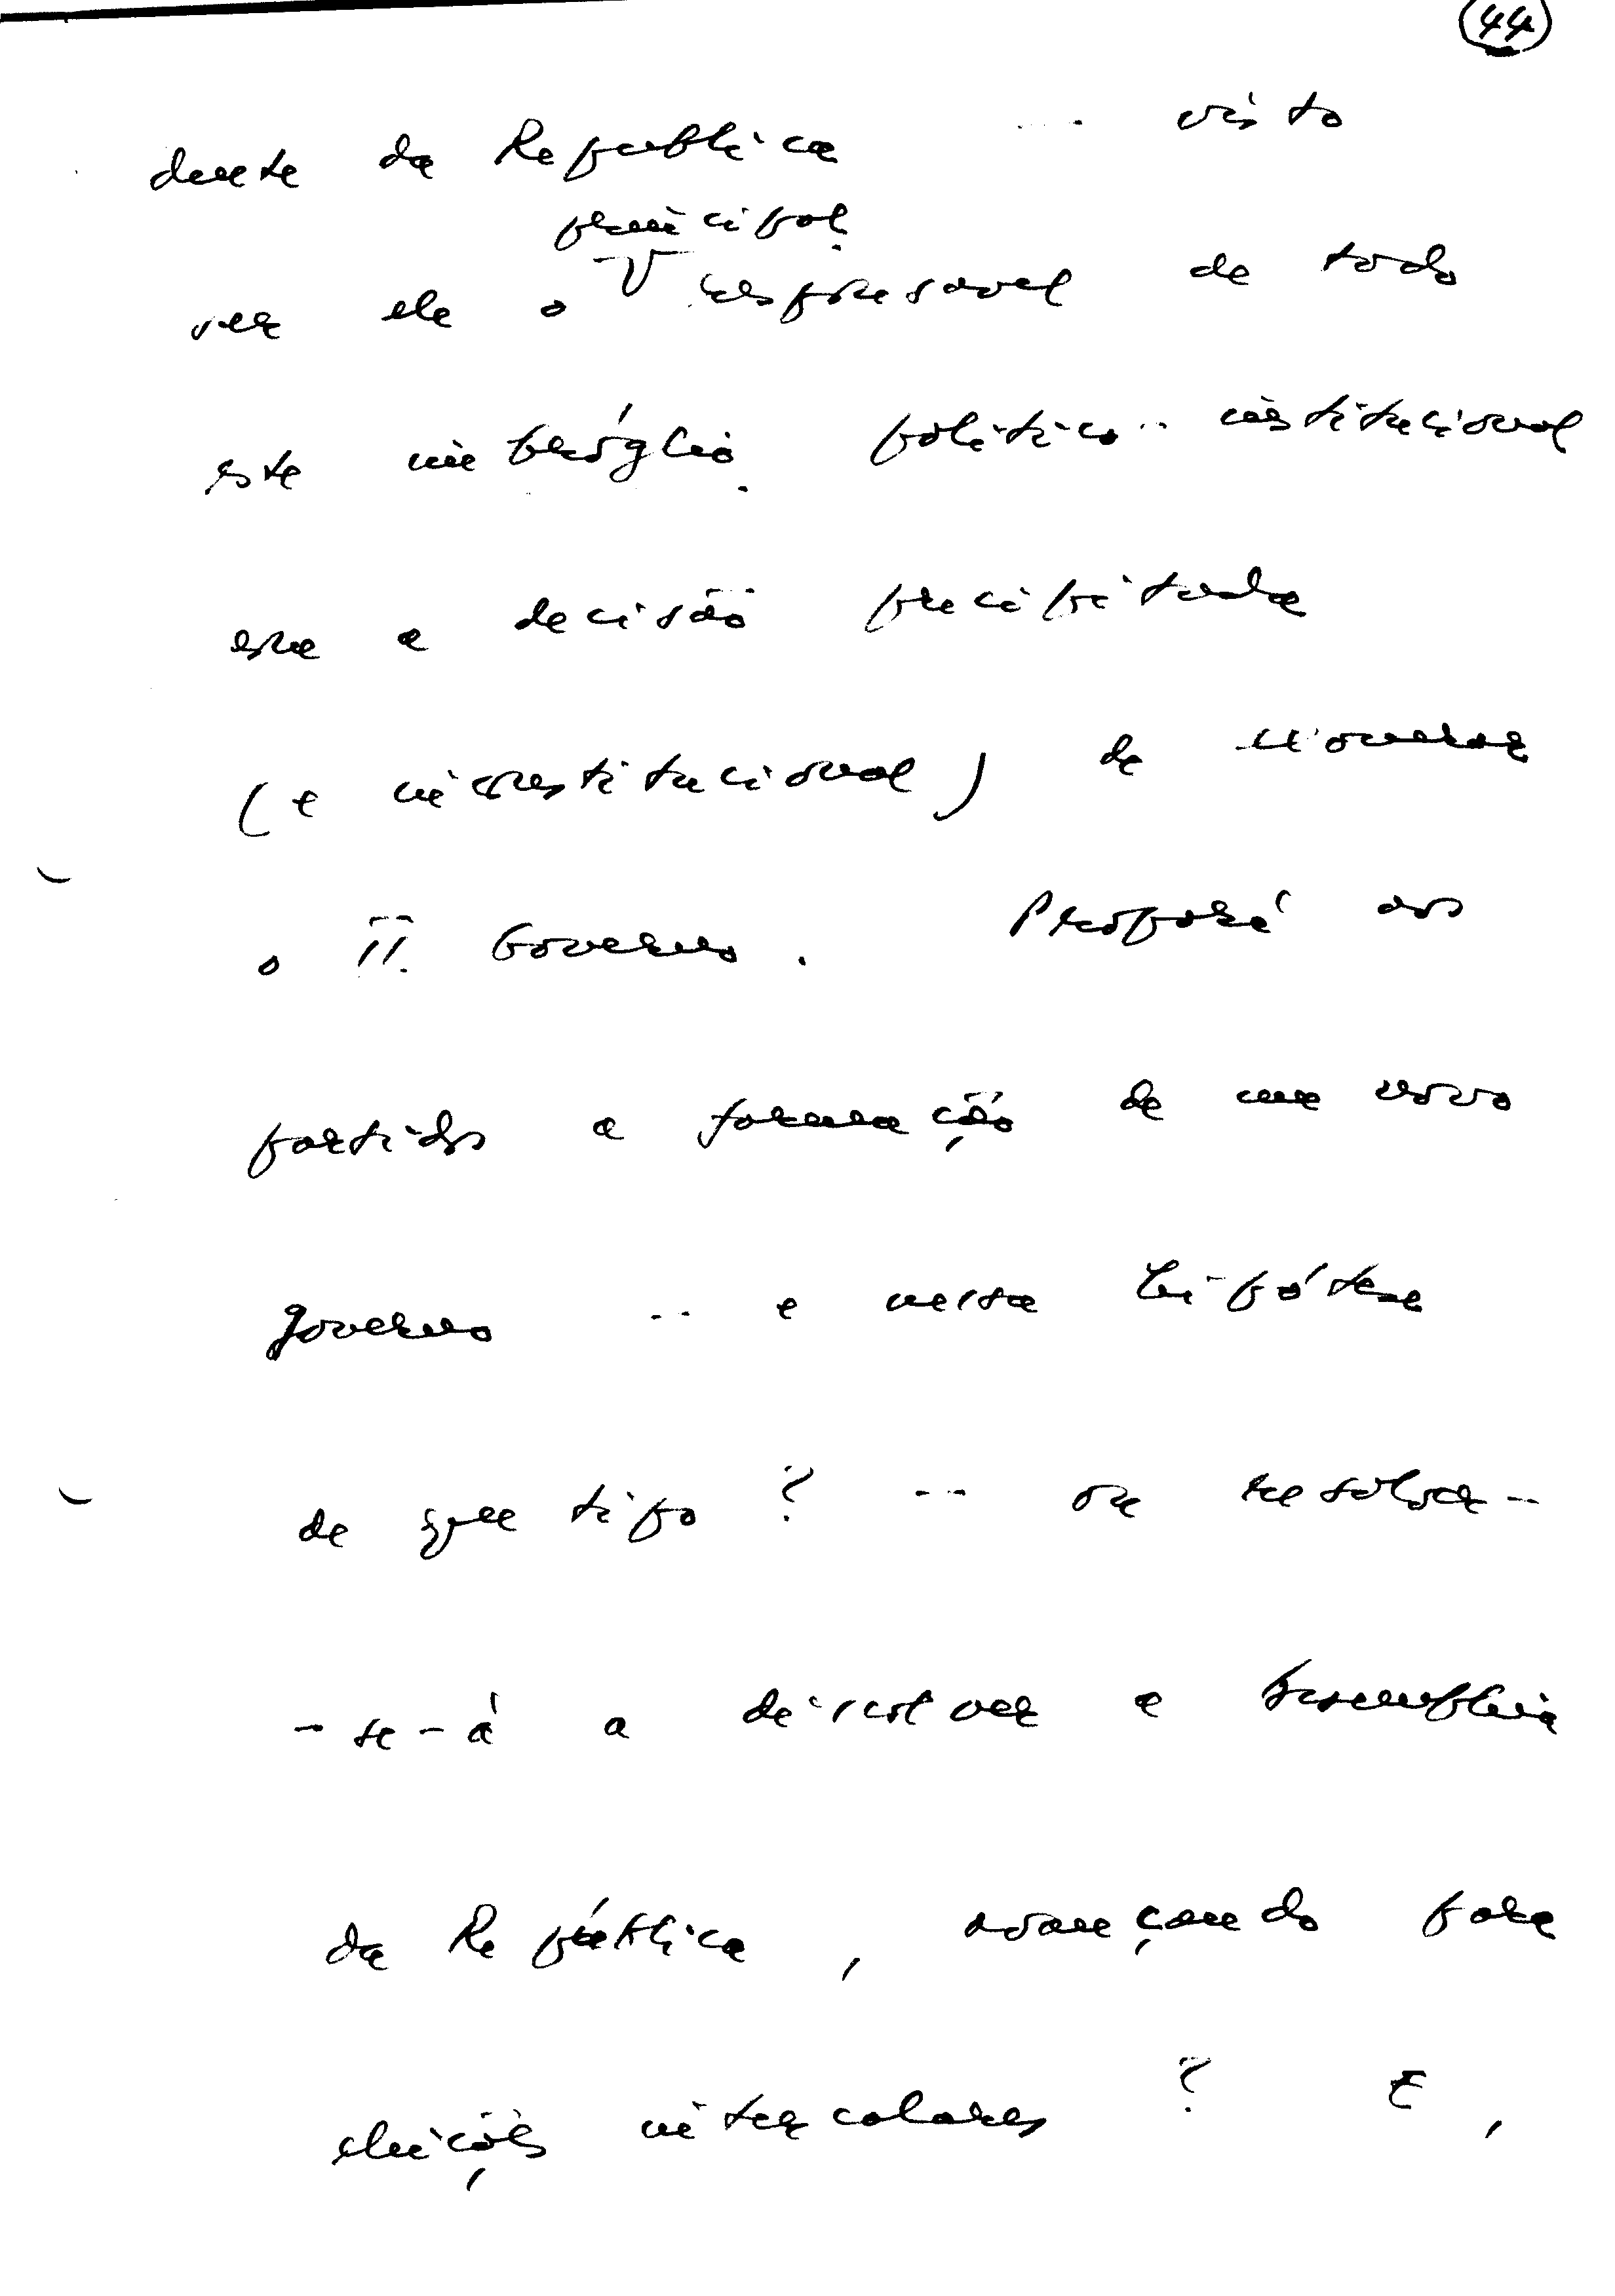 44
dente da República -- visto
principal
ser ele o responsavel de todo
este imbróglio político-institucional
com a decisão precipitada
(e inconstitucional) de exonerar
o II Governo. Proporá aos
partidos a formação de um novo
governo -- e nessa hipótese
de que tipo? -- ou resolver-
-se-á a dissolver a Assembleia
da República, avançando para
eleições intercalares? E,